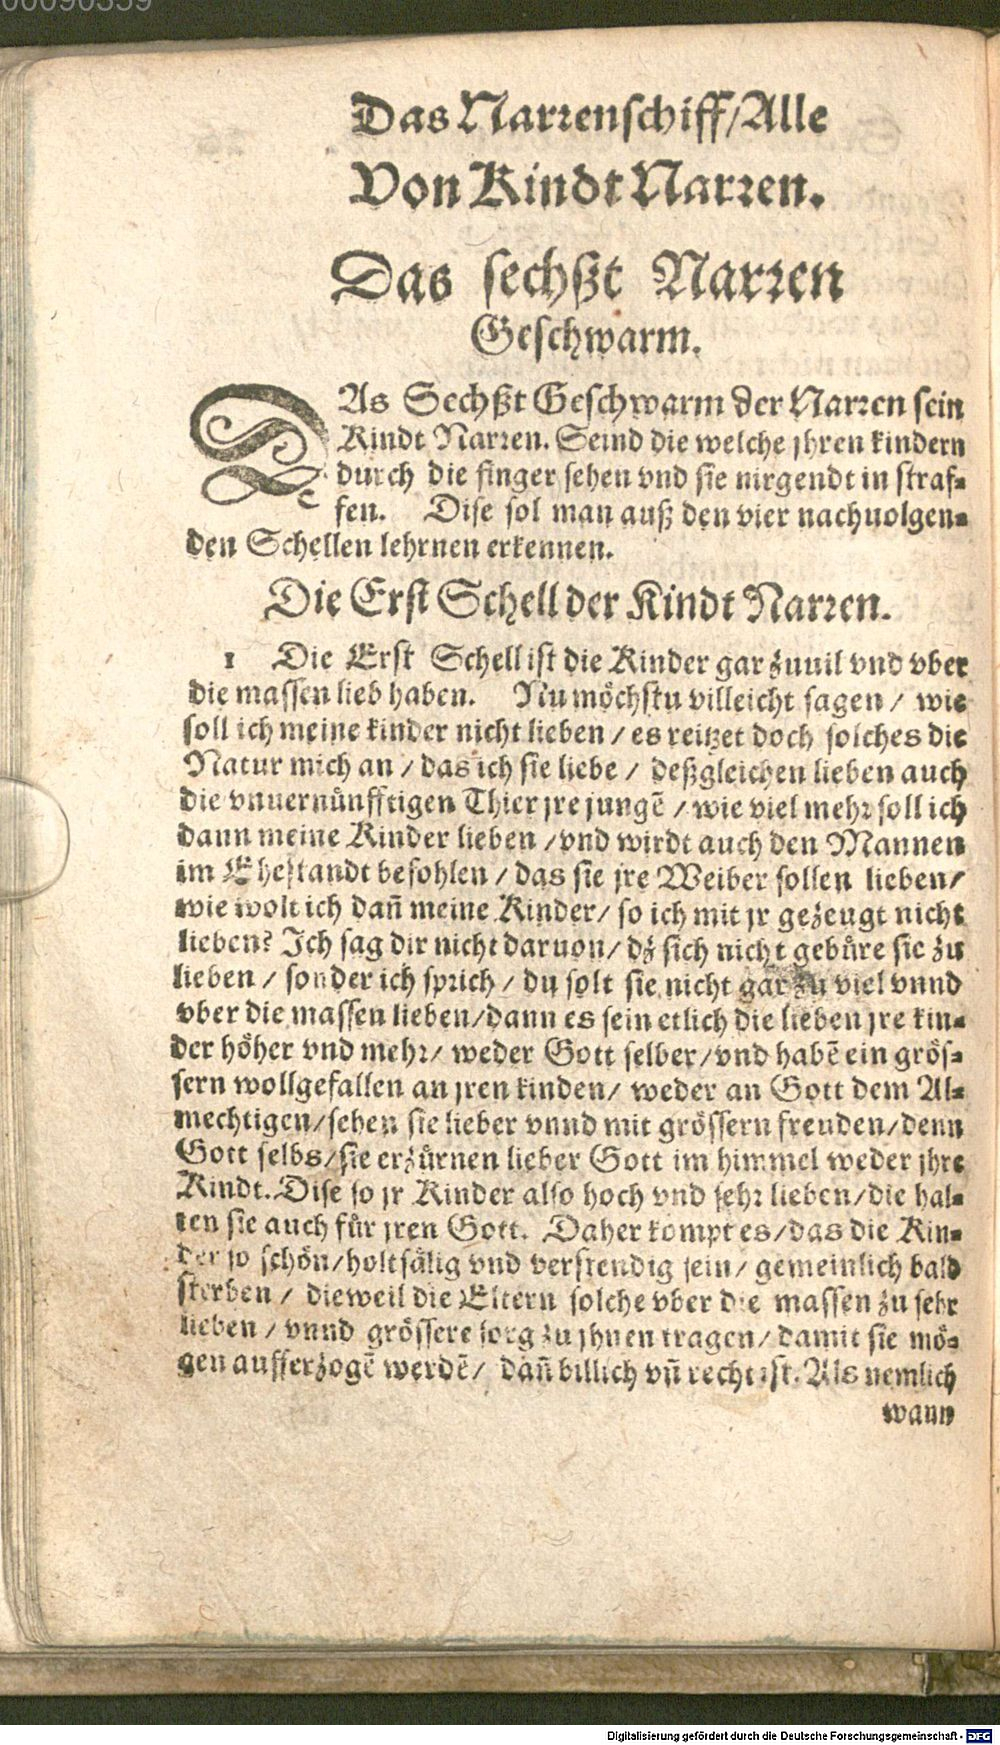 00090359
Das Narrenschiff/Alle
Von Kindt Narren.
Das sechßt Narren
Geschwarm.
DAs Sechßt Geschwarm der Narren sein
Kindt Narren. Seind die welche jhren kindern
durch die finger sehen vnd sie nirgendt in straf-
fen. Dise sol man auß den vier nachuolgen-
den Schellen lehrnen erkennen.
Die Erst Schell der Kindt Narren.
1 Die Erst Schell ist die Kinder gar zuuil vnd vber
die massen lieb haben. Nu möchstu villeicht sagen / wie
soll ich meine kinder nicht lieben / es reitzet doch solches die
Natur mich an / das ich sie liebe / deßgleichen lieben auch
die vnuernünfftigen Thier jre jungē / wie viel mehr soll ich
dann meine Kinder lieben / vnd wirdt auch den Mannen
im Ehestandt befohlen / das sie jre Weiber sollen lieben/
wie wolt ich dañ meine Kinder/ so ich mit jr gezeugt nicht
lieben? Ich sag dir nicht daruon/ dz sich nicht gebüre sie zu
lieben / sonder ich sprich / du solt sie nicht gar zu viel vnnd
vber die massen lieben/dann es sein etlich die lieben jre kin-
der höher vnd mehr/ weder Gott selber/vnd habē ein grös-
sern wollgefallen an jren kinden/ weder an Gott dem Al-
mechtigen/sehen sie lieber vnnd mit grössern freuden/denn
Gott selbs/sie erzürnen lieber Gott im himmel weder jhre
Kindt. Dise so jr Kinder also hoch vnd sehr lieben/die hal-
ten sie auch für jren Gott. Daher kompt es/das die Kin-
der so schön/holtsälig vnd verstendig sein/ gemeinlich bald
sterben / dieweil die Eltern solche vber die massen zu sehr
lieben / vnnd grössere sorg zu jhnen tragen/ damit sie mö-
gen aufferzogē werdē/ dañ billich vñ recht ist. Als nemlich
wann
Digitalisierung gefördert durch die Deutsche Forschungsgemeinschaft - DFG